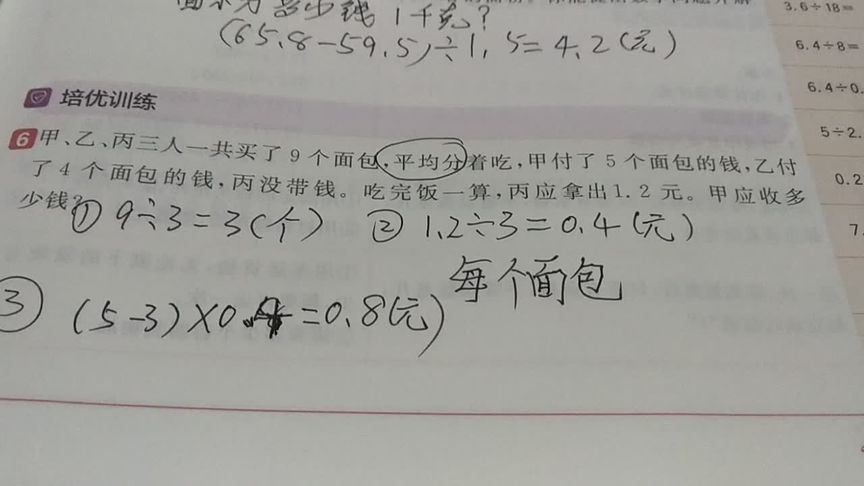 面示为多少钱1千克?
(65.8-59.5)÷1.5=4.2(元)
3.6÷18=
6.4÷8=
6.4÷0.
5÷2.
0.2
7.
培优训练
6 甲、乙、丙三人一共买了9个面包,平均分着吃,甲付了5个面包的钱,乙付
了4个面包的钱,丙没带钱。吃完饭一算,丙应拿出1.2元。甲应收多
少钱?
① 9÷3=3(个) ② 1.2÷3=0.4(元)
每个面包
③ (5-3)×0.4=0.8(元)